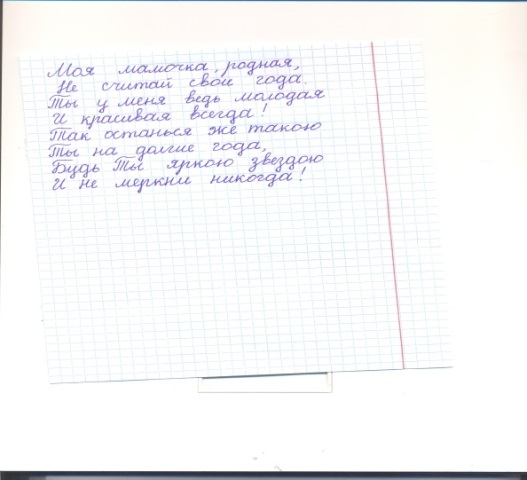 Моя мамочка, родная,
Не считай свои года.
Ты у меня ведь молодая
И красивая всегда!
Так останься же такою
Ты на долгие года,
Будь Ты яркою звездою
И не меркни никогда!